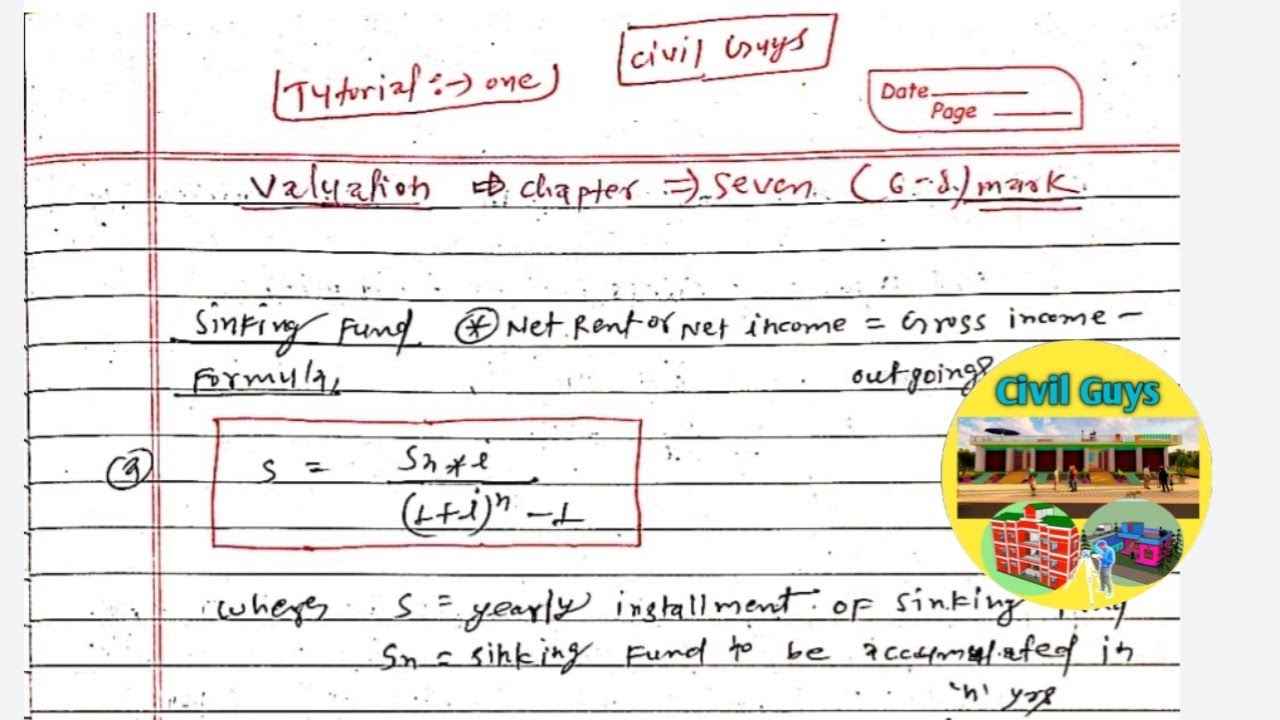 Civil Guys
Tutorial :-> one
Date
Page
Valuation => chapter => seven (6-8) mark
Sinking Fund * Net Rent or Net income = Gross income -
Formula, outgoings
Civil Guys
a
S = Sn * i
(1+i)^n - 1
where, S = yearly installment of sinking
Sn = sinking Fund to be accumulated in
'n' yrs